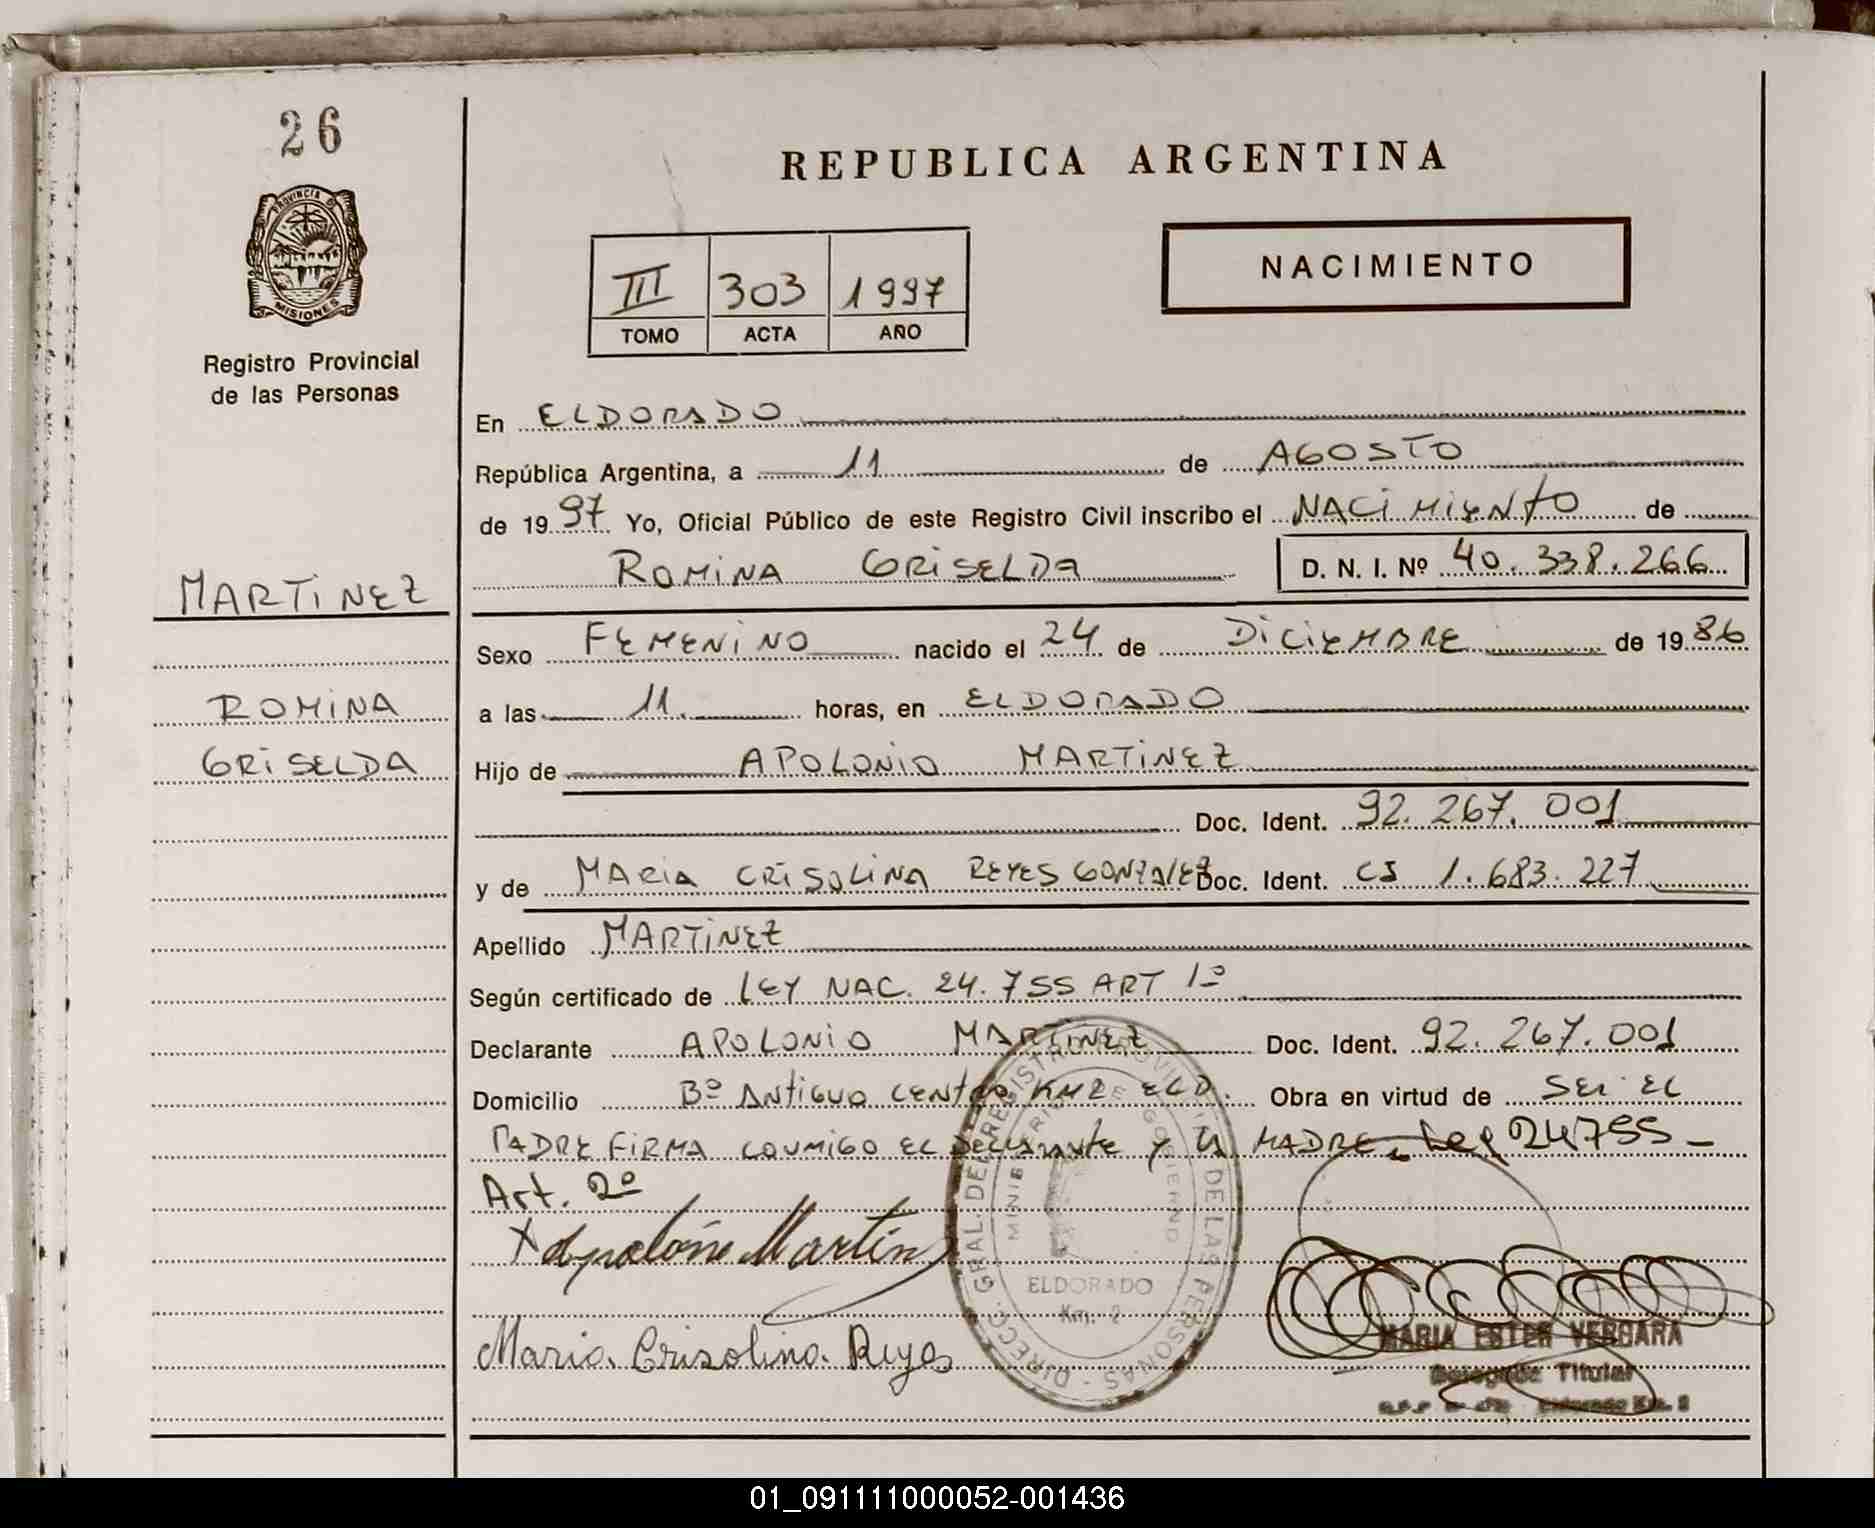 26
PROVINCIA DE
MISIONES
Registro Provincial
de las Personas
MARTINEZ
ROMINA
GRISELDA
REPUBLICA ARGENTINA
III 303 1997
TOMO ACTA AÑO
NACIMIENTO
En ELDORADO
República Argentina, a 11 de AGOSTO
de 1997 Yo, Oficial Público de este Registro Civil inscribo el NACIMIENTO de
ROMINA GRISELDA D. N. I. Nº 40.338.266
Sexo FEMENINO nacido el 24 de DICIEMBRE de 1986
a las 11 horas, en ELDORADO
Hijo de APOLONIO MARTINEZ
Doc. Ident. 92.267.001
y de MARIA CRISOLINA REYES GONZALEZ Doc. Ident. CI 1.683.227
Apellido MARTINEZ
Según certificado de LEY NAC. 24.755 ART 1º
Declarante APOLONIO MARTINEZ Doc. Ident. 92.267.001
Domicilio Bº ANTIGUO CENTRO KM2 ELD. Obra en virtud de SER EL
PADRE FIRMA CONMIGO EL DECLARANTE Y LA MADRE. Ley 24755 -
Art. 2º
X Apolonio Martin
Maria Crisolina Reyes
DIRECC. GRAL. DEL REGISTRO PROVINCIAL DE LAS PERSONAS
MINISTERIO DE GOBIERNO
ELDORADO
Km. 2
MARIA ESTER VERGARA
Delegada Titular
Eldorado Km. 2
01_091111000052-001436